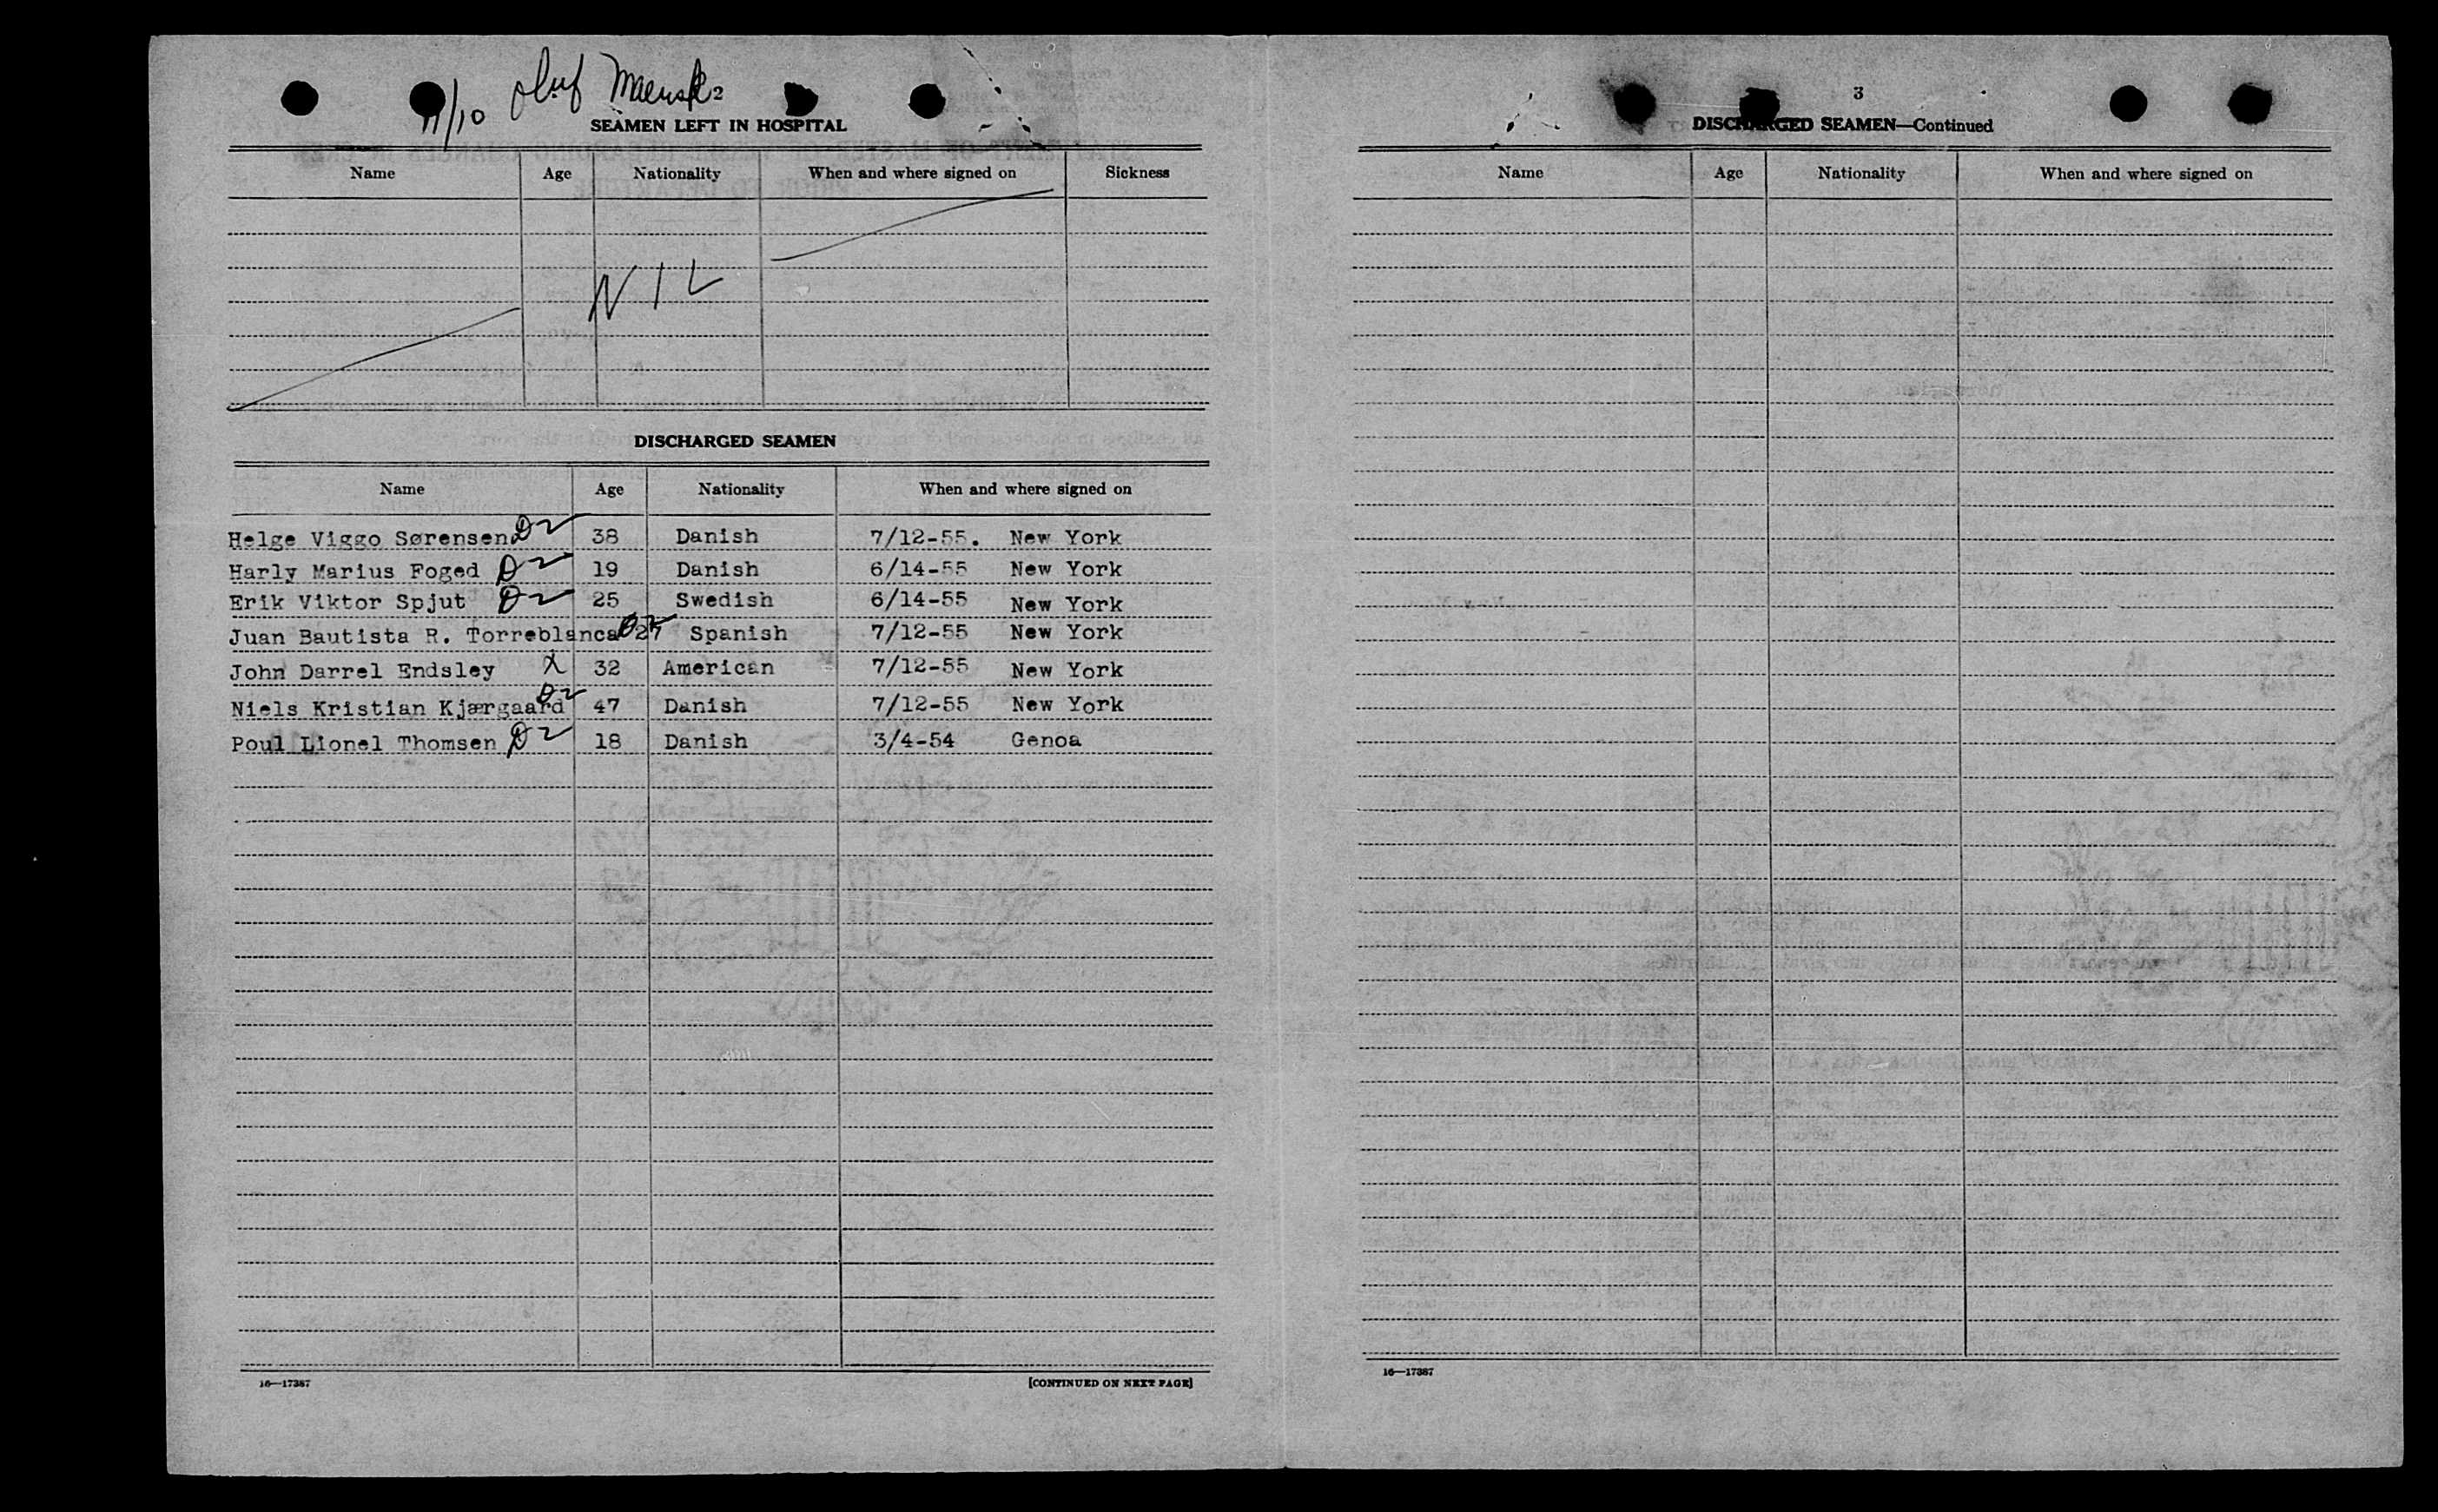 11/10 Oluf Maersk 2
SEAMEN LEFT IN HOSPITAL
Name Age Nationality When and where signed on Sickness
NIL
DISCHARGED SEAMEN
Name Age Nationality When and where signed on
Helge Viggo Sørensen D2 38 Danish 7/12-55. New York
Harly Marius Foged D2 19 Danish 6/14-55 New York
Erik Viktor Spjut D2 25 Swedish 6/14-55 New York
Juan Bautista R. Torreblanca D2 27 Spanish 7/12-55 New York
John Darrel Endsley X 32 American 7/12-55 New York
Niels Kristian Kjærgaard D2 47 Danish 7/12-55 New York
Poul Lionel Thomsen D2 18 Danish 3/4-54 Genoa
16—17387 [CONTINUED ON NEXT PAGE]
3
DISCHARGED SEAMEN—Continued
Name Age Nationality When and where signed on
16—17387